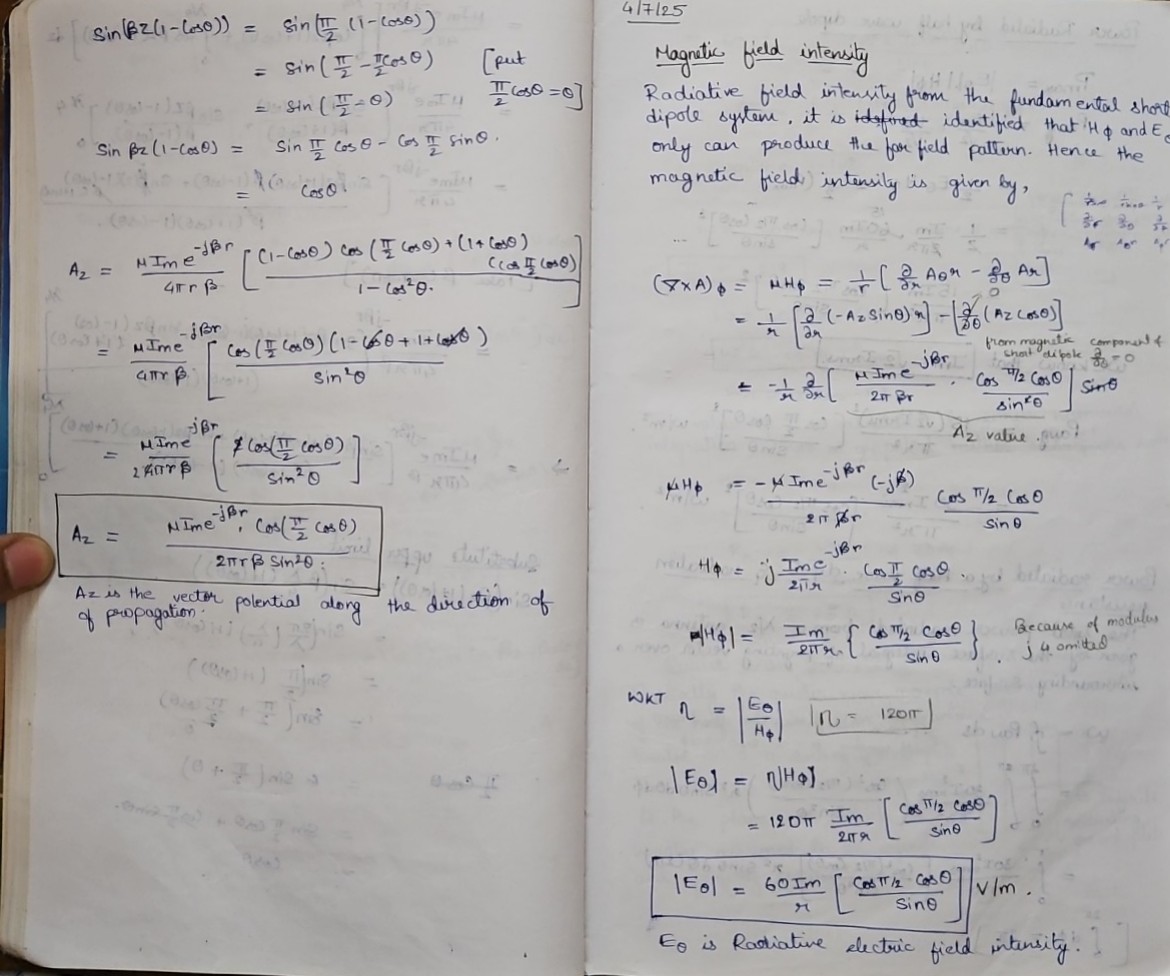 Sin(βz(1-Cosθ)) = sin(π/2 (1-Cosθ))
= sin(π/2 - π/2 cosθ) [put
= sin(π/2 - θ) π/2 cosθ = θ]
Sin βz(1-Cosθ) = Sin π/2 Cosθ - Cos π/2 sinθ.
= Cosθ.
Az = μIme^-jβr / 4πrβ [ (1-Cosθ) Cos(π/2 Cosθ) + (1+Cosθ) (Cos π/2 Cosθ) / 1-Cos²θ. ]
= μIme^-jβr / 4πrβ [ Cos(π/2 Cosθ)(1-Cosθ + 1+Cosθ) / Sin²θ
= μIme^-jβr / 2 4πrβ [ 2 Cos(π/2 Cosθ) / Sin²θ ]
Az = μIme^-jβr . Cos(π/2 Cosθ) / 2πrβ Sin²θ.
Az is the vector potential along the direction of
of propagation.
4/7/25
Magnetic field intensity
Radiative field intensity from the fundamental short
dipole system, it is identified that Hϕ and E
only can produce the far field pattern. Hence the
magnetic field intensity is given by,
(∇×A)ϕ = μHϕ = 1/r [ ∂/∂r Aθr - ∂/∂θ Ar ]
= 1/r [ ∂/∂r (-Az Sinθ) r ] - [ ∂/∂θ (Az Cosθ) ] 0
from magnetic component of
short dipole ∂/∂θ = 0
= -1/r ∂/∂r [ μIme^-jβr / 2πβr . Cos π/2 Cosθ / sin²θ ] Sinθ
Az value.
μHϕ = -μIme^-jβr (-jβ) / 2πβr Cos π/2 Cosθ / Sinθ
Hϕ = j Ime^-jβr / 2πr . Cos π/2 Cosθ / Sinθ .
|Hϕ| = Im / 2πr { Cos π/2 Cosθ / Sinθ } . Because of modulus
j is omitted
WKT η = |Eθ / Hϕ| |η = 120π|
|Eθ| = η|Hϕ|
= 120π Im / 2πr [ Cos π/2 Cosθ / Sinθ ]
|Eθ| = 60Im / r [ Cos π/2 Cosθ / Sinθ ] V/m.
Eθ is Radiative electric field intensity.